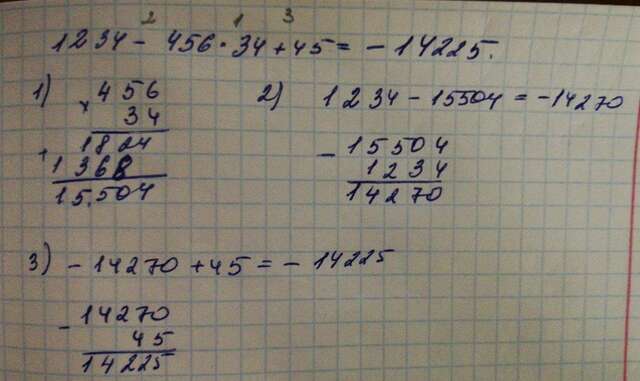 2 1 3
1234 - 456 · 34 + 45 = - 14225.
1) × 456
34
+ 1824
1368
15.504
2) 1234 - 15504 = -14270
- 15504
1234
14270
3) - 14270 + 45 = - 14225
- 14270
45
14225